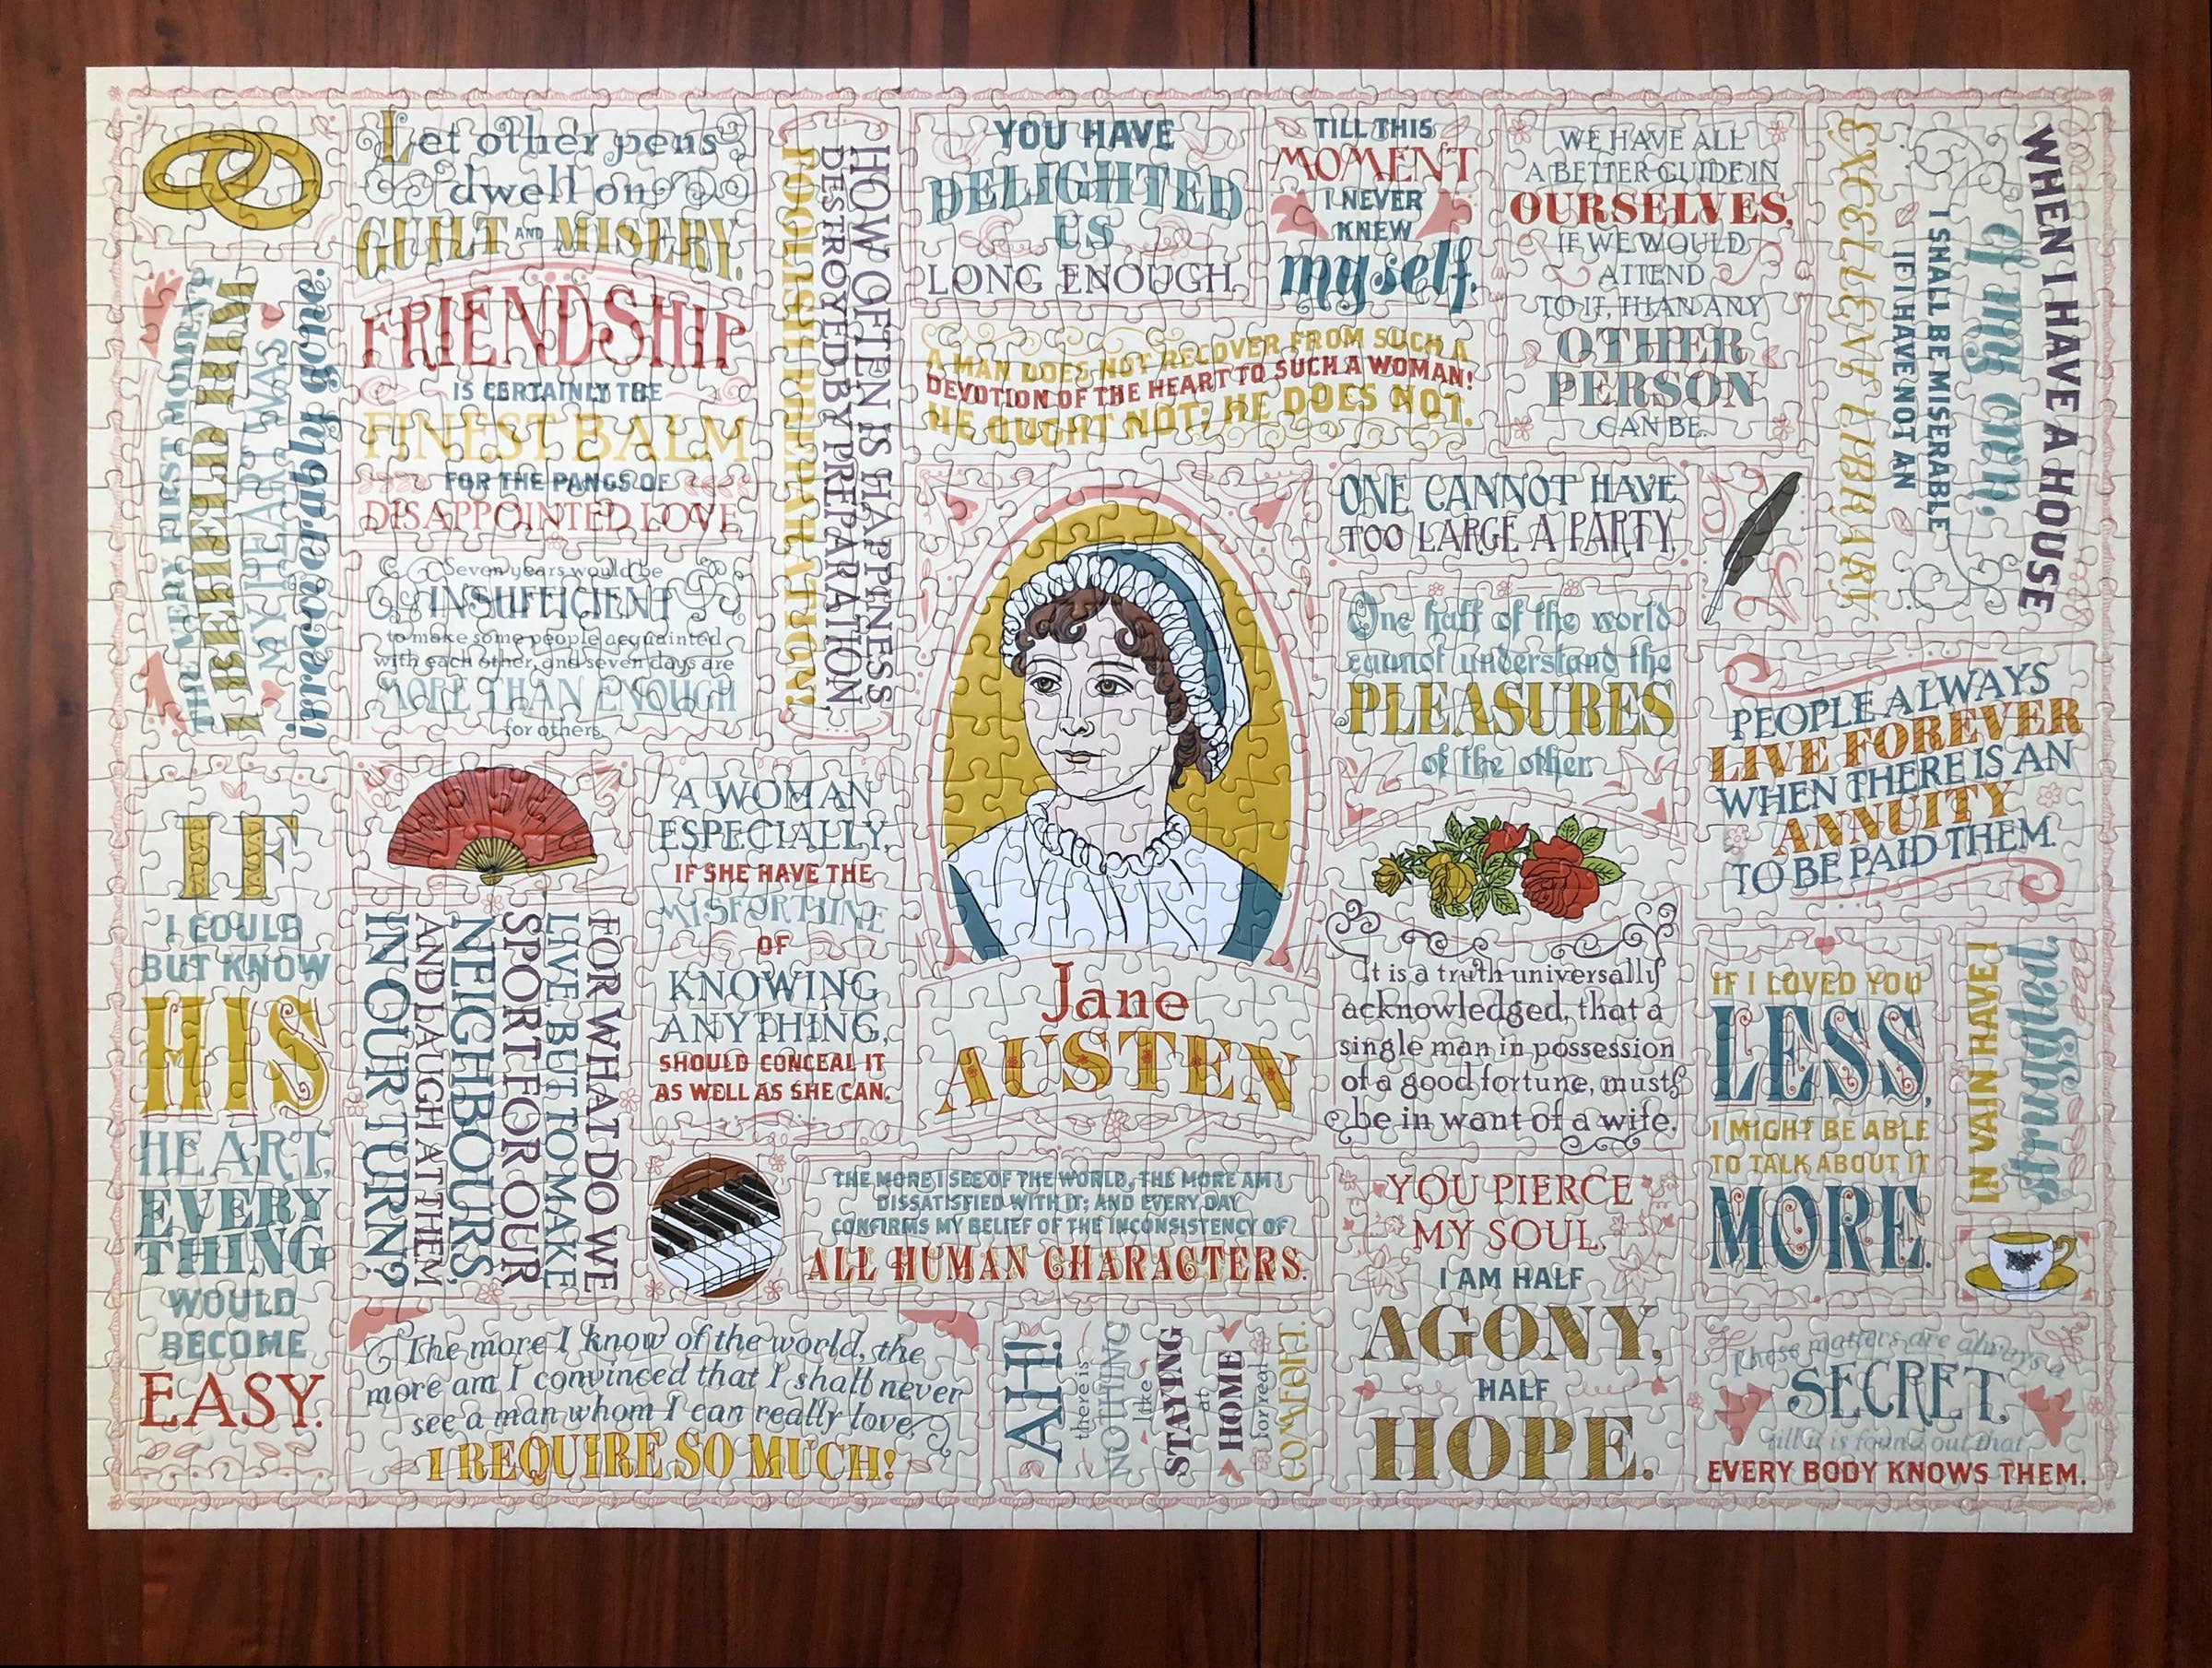 Let other pens
dwell on
GUILT AND MISERY.
THE VERY FIRST MOMENT
I BEHELD HIM
MY HEART WAS
irrecoverably gone.
FRIENDSHIP
IS CERTAINLY THE
FINEST BALM
FOR THE PANGS OF
DISAPPOINTED LOVE
Seven years would be
INSUFFICIENT
to make some people acquainted
with each other, and seven days are
MORE THAN ENOUGH
for others.
HOW OFTEN IS HAPPINESS
DESTROYED BY PREPARATION,
FOOLISH PREPARATION!
YOU HAVE
DELIGHTED
US
LONG ENOUGH.
TILL THIS
MOMENT
I NEVER
KNEW
myself.
WE HAVE ALL
A BETTER GUIDE IN
OURSELVES,
IF WE WOULD
ATTEND
TO IT, THAN ANY
OTHER
PERSON
CAN BE.
WHEN I HAVE A HOUSE
of my own,
I SHALL BE MISERABLE
IF I HAVE NOT AN
EXCELLENT LIBRARY
A MAN DOES NOT RECOVER FROM SUCH A
DEVOTION OF THE HEART TO SUCH A WOMAN!
HE OUGHT NOT; HE DOES NOT.
ONE CANNOT HAVE
TOO LARGE A PARTY.
One half of the world
cannot understand the
PLEASURES
of the other.
PEOPLE ALWAYS
LIVE FOREVER
WHEN THERE IS AN
ANNUITY
TO BE PAID THEM.
IF
I COULD
BUT KNOW
HIS
HEART,
EVERY
THING
WOULD
BECOME
EASY.
FOR WHAT DO WE
LIVE BUT TO MAKE
SPORT FOR OUR
NEIGHBOURS,
AND LAUGH AT THEM
IN OUR TURN?
A WOMAN
ESPECIALLY,
IF SHE HAVE THE
MISFORTUNE
OF
KNOWING
ANYTHING,
SHOULD CONCEAL IT
AS WELL AS SHE CAN.
Jane
AUSTEN
It is a truth universally
acknowledged, that a
single man in possession
of a good fortune, must
be in want of a wife.
IF I LOVED YOU
LESS,
I MIGHT BE ABLE
TO TALK ABOUT IT
MORE.
IN VAIN HAVE I
struggled.
THE MORE I SEE OF THE WORLD, THE MORE AM I
DISSATISFIED WITH IT; AND EVERY DAY
CONFIRMS MY BELIEF OF THE INCONSISTENCY OF
ALL HUMAN CHARACTERS.
YOU PIERCE
MY SOUL.
I AM HALF
AGONY,
HALF
HOPE.
The more I know of the world, the
more am I convinced that I shall never
see a man whom I can really love.
I REQUIRE SO MUCH!
AH!
there is
NOTHING
like
STAYING
at
HOME
for real
COMFORT.
These matters are always a
SECRET,
till it is found out that
EVERY BODY KNOWS THEM.